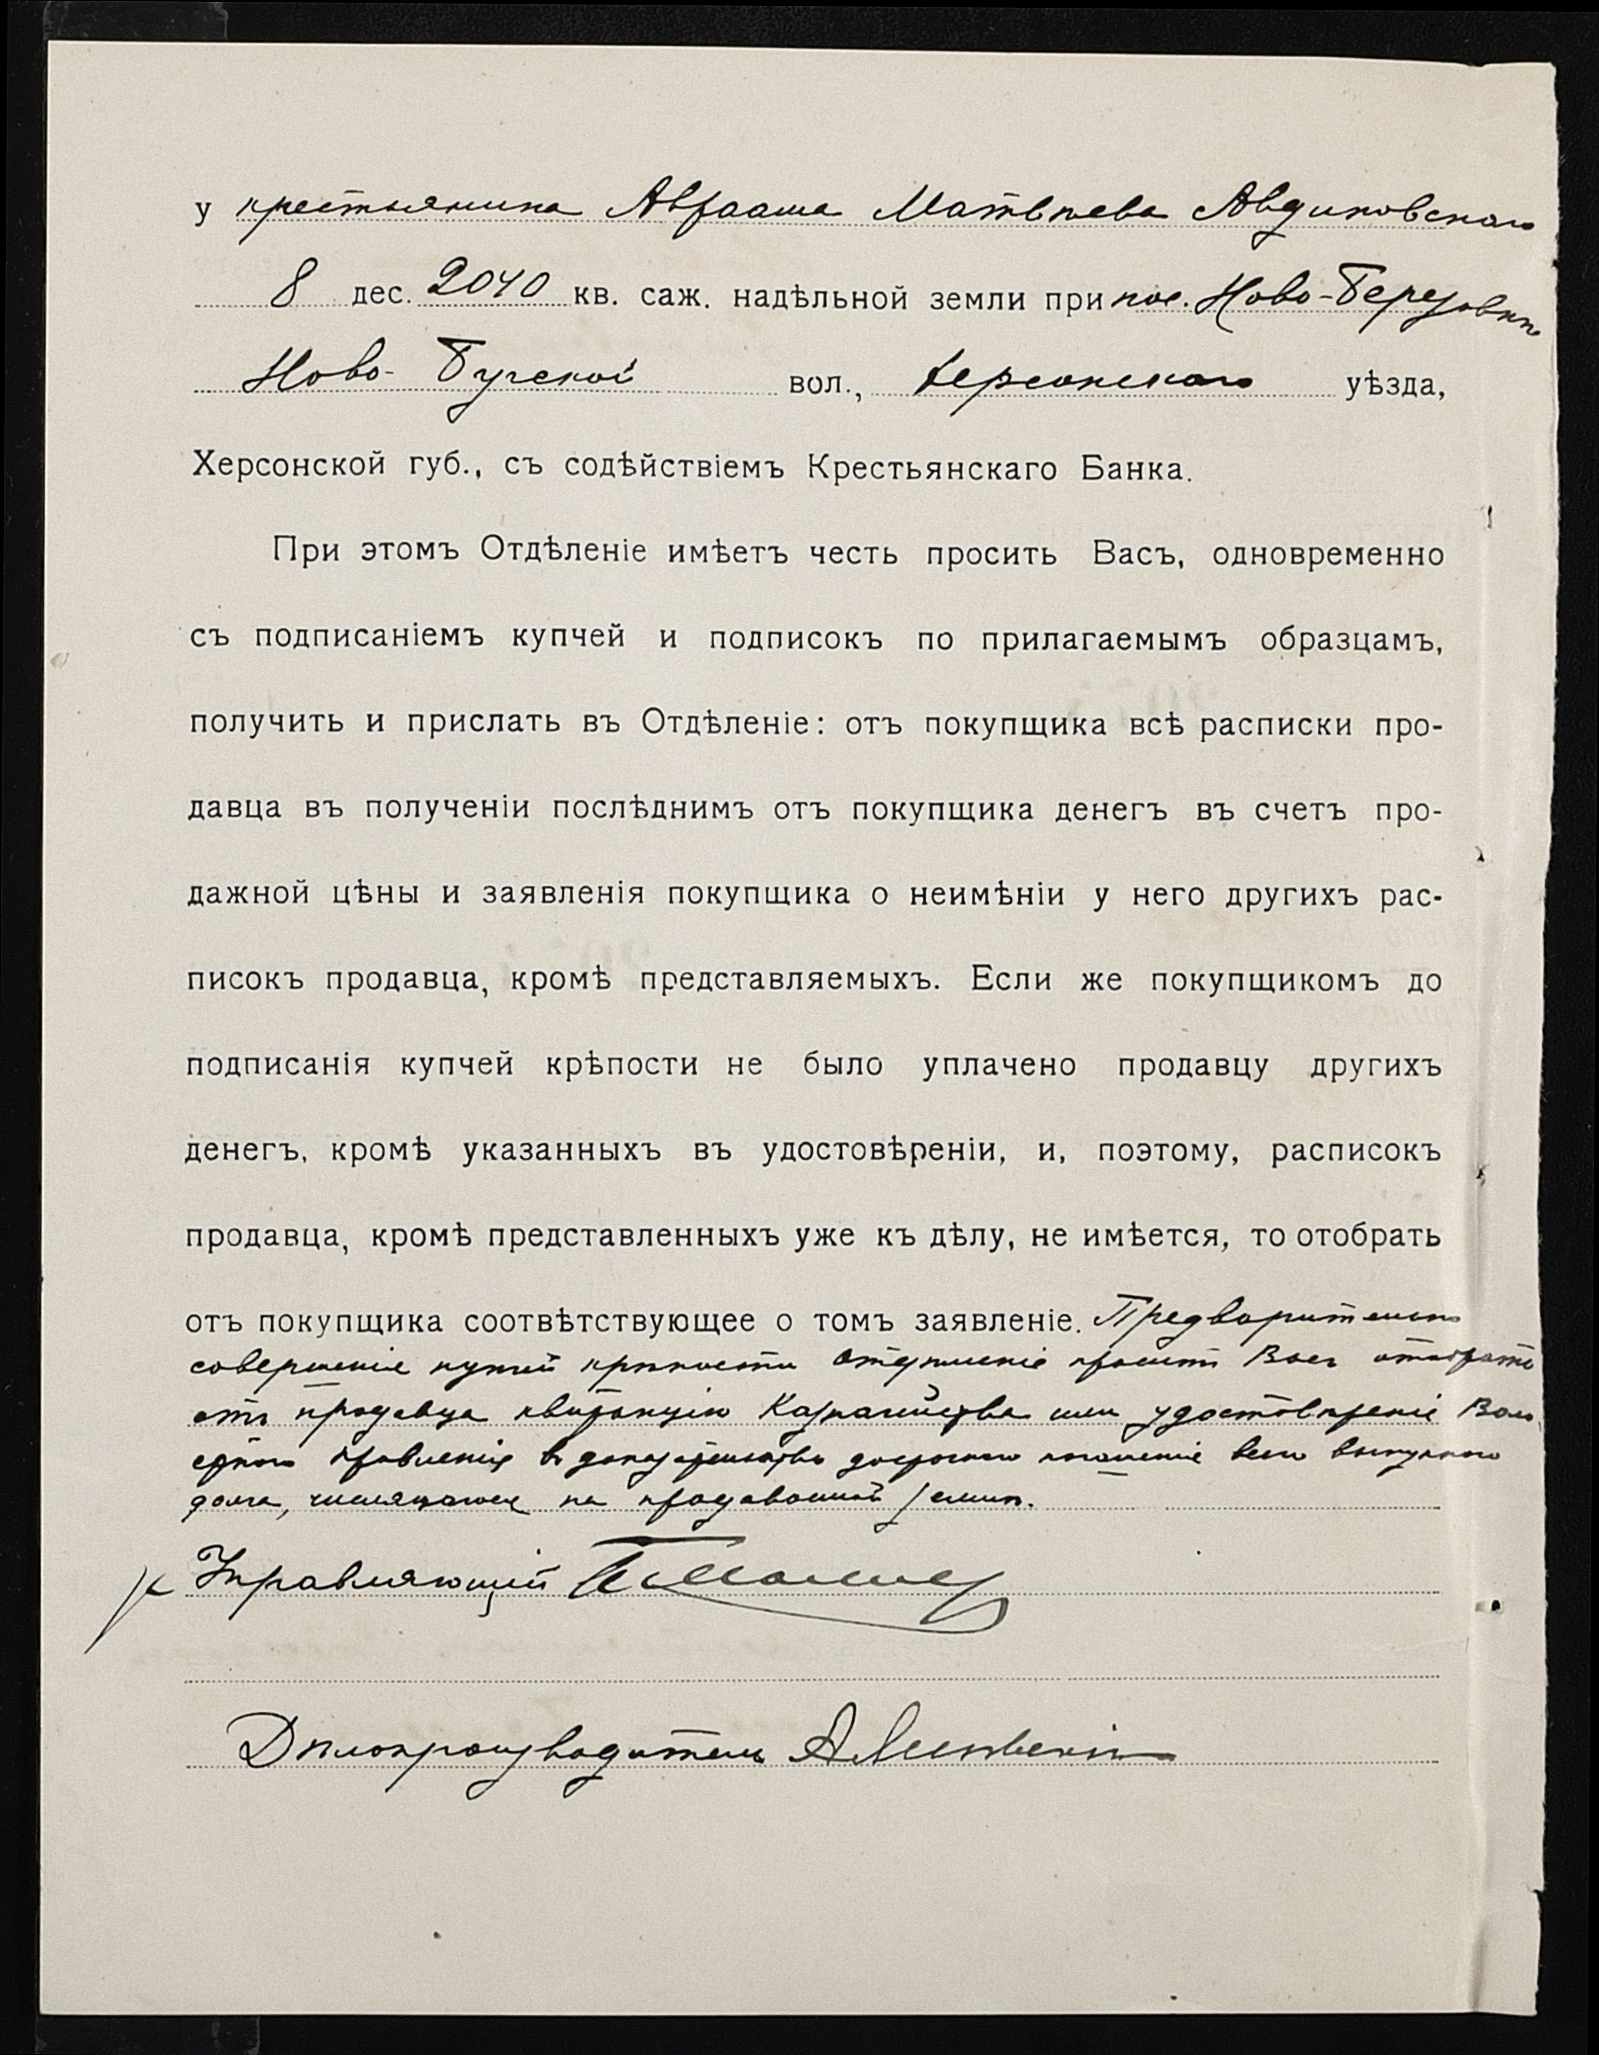 у крестьянина Авраама Матвѣева Авдиковскаго
8 дес. 2040 кв. саж. надѣльной земли при пос. Ново-Березовкѣ
Ново-Бугской вол., Херсонскаго уѣзда,
Херсонской губ., съ содѣйствіемъ Крестьянскаго Банка.
При этомъ Отдѣленіе имѣетъ честь просить Васъ, одновременно
съ подписаніемъ купчей и подписокъ по прилагаемымъ образцамъ,
получить и прислать въ Отдѣленіе: отъ покупщика всѣ расписки про-
давца въ полученіи послѣднимъ отъ покупщика денегъ въ счетъ про-
дажной цѣны и заявленія покупщика о неимѣніи у него другихъ рас-
писокъ продавца, кромѣ представляемыхъ. Если же покупщикомъ до
подписанія купчей крѣпости не было уплачено продавцу другихъ
денегъ, кромѣ указанныхъ въ удостовѣреніи, и, поэтому, расписокъ
продавца, кромѣ представленныхъ уже къ дѣлу, не имѣется, то отобрать
отъ покупщика соотвѣтствующее о томъ заявленіе. Предварительно
совершенія купчей крѣпости Отдѣленіе проситъ Васъ отобрать
отъ продавца квитанцію Казначейства или удостовѣреніе Воло
стного Правленія въ доказательство досрочнаго погашенія всего выкупного
долга, числящагося на продаваемой землѣ.
Управляющій
Дѣлопроизводитель